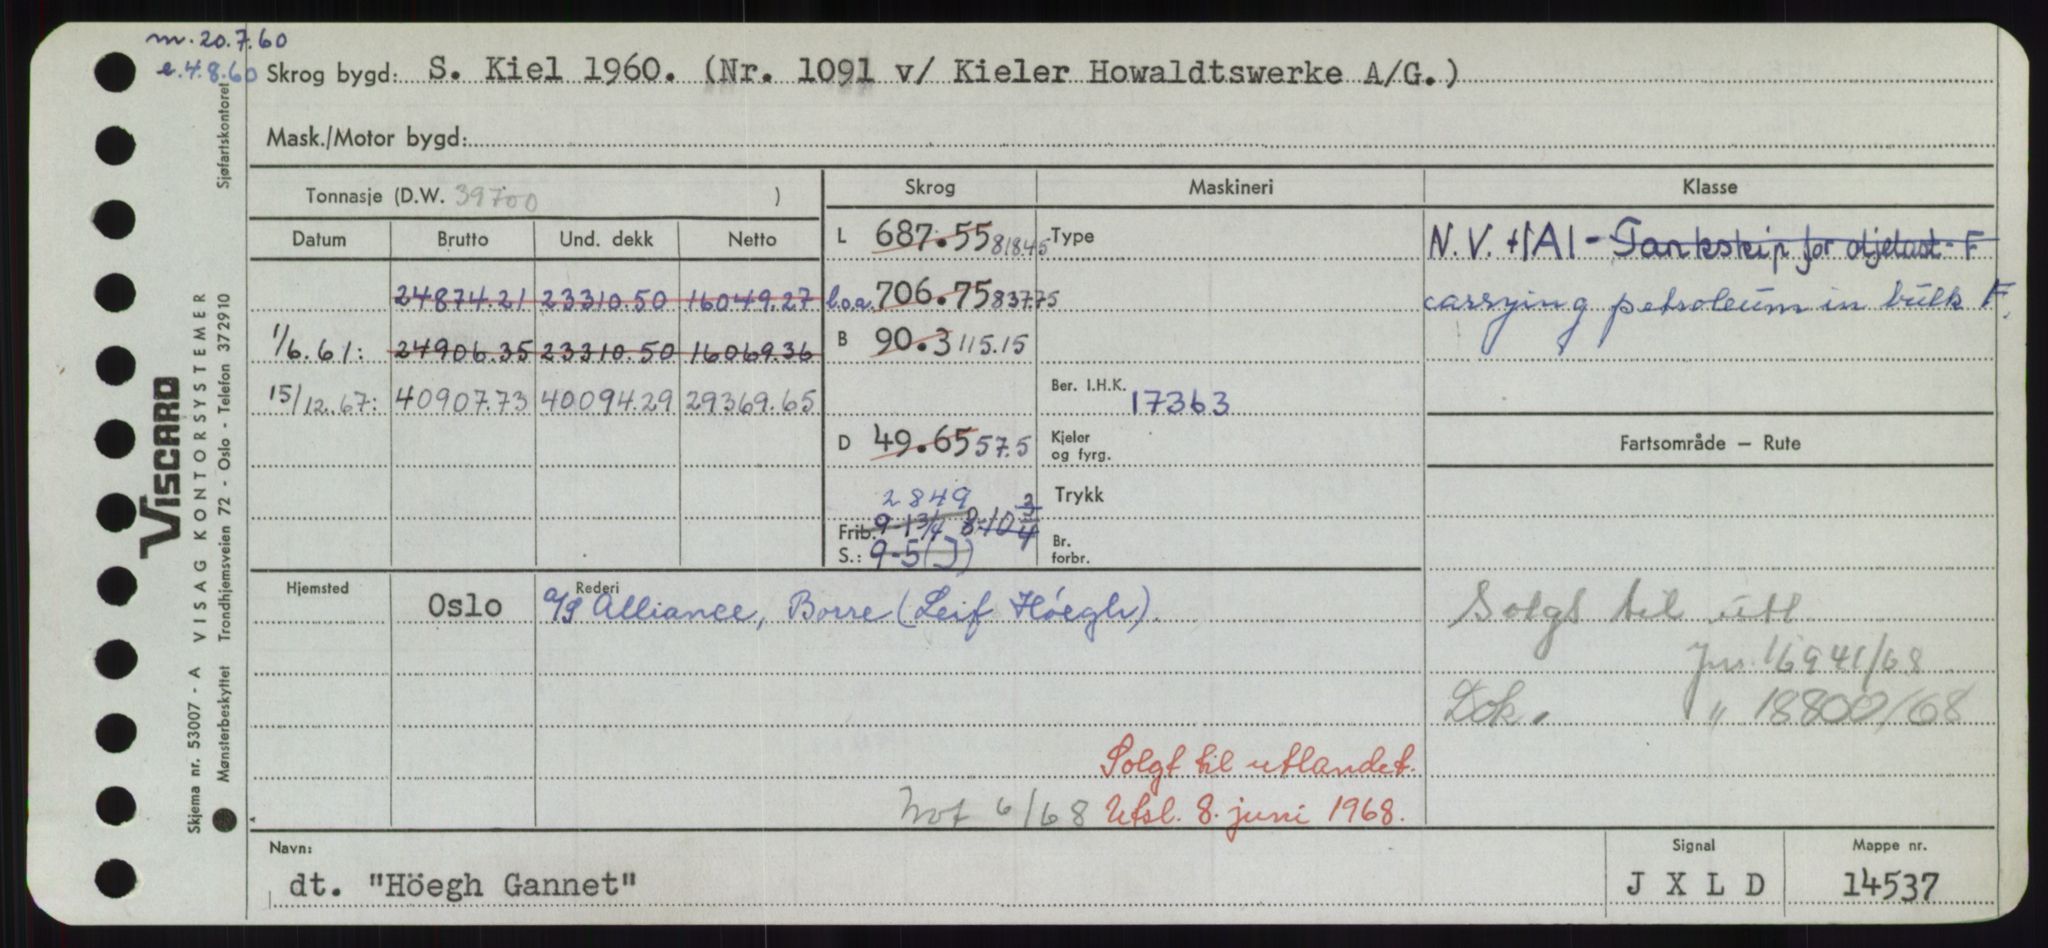 m. 20.7.60
e. 4.8.60
Skrog bygd: S. Kiel 1960. (Nr. 1091 v/ Kieler Howaldtswerke A/G.)
Mask./Motor bygd:
Tonnasje (D.W. 39700 )
Skrog Maskineri Klasse
Datum Brutto Und. dekk Netto
L 687.55 818.45 Type
N.V. +1A1 - Tankskip for oljelast - F
24874.21 23310.50 16049.27
l.o.a. 706.75 837.75
carrying petroleum in bulk F.
1/6.61: 24906.35 23310.50 16069.36
B 90.3 115.15
15/12.67: 40907.73 40094.29 29369.65
Ber. I.H.K. 17363
D 49.65 57.5
Kjeler og fyrg.
Fartsområde — Rute
2849
Trykk
Frib. 9-1 3/4 8-10 3/4
S.: 9-5 (J)
Br. forbr.
Hjemsted Rederi
Oslo a/s Alliance, Borre (Leif Höegh).
Solgt til utl
Jnr. 16941/68
Dok. " 18800/68
Solgt til utlandet.
Not 6/68 Utsl. 8. juni 1968.
Navn: Signal Mappe nr.
dt. "Höegh Gannet" J X L D 14537
Sjøfartskontoret
VISCARD
VISAG KONTORSYSTEMER
Trondhjemsveien 72 - Oslo - Telefon 372910
Skjema nr. 53007 - A
Mønsterbeskyttet